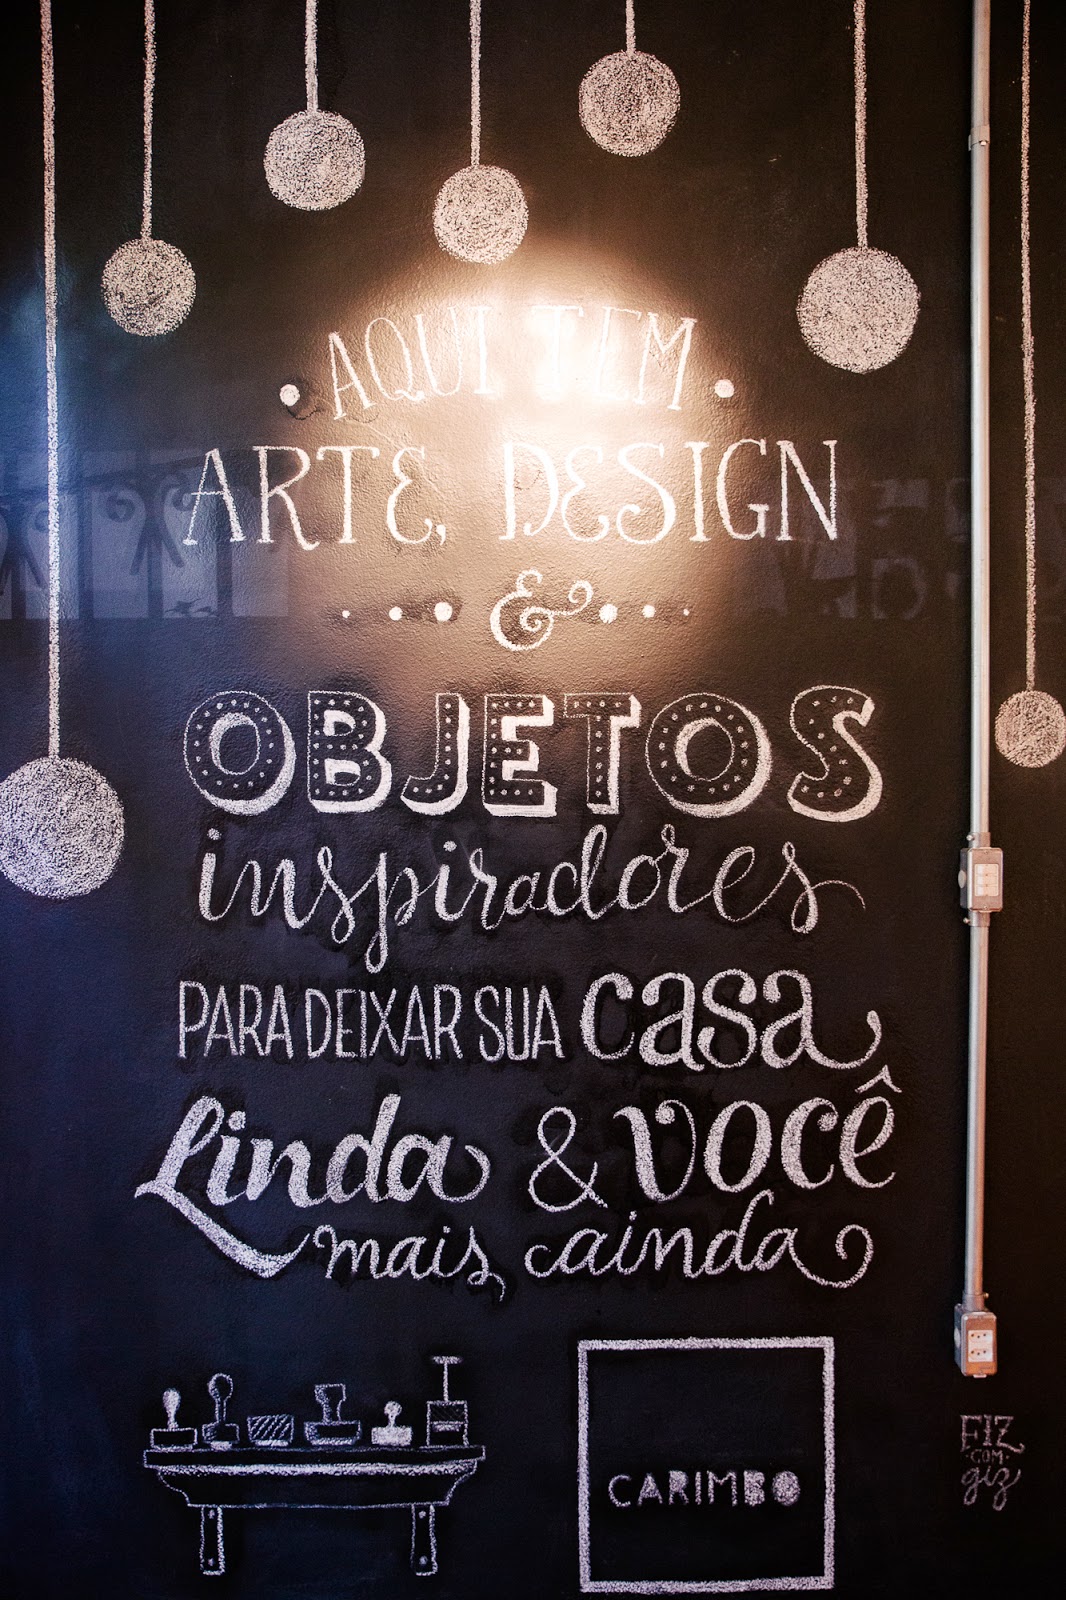 AQUI TEM
ARTE, DESIGN
&
OBJETOS
inspiradores
PARA DEIXAR SUA casa
Linda & você
mais ainda
CARIMBO
FIZ
COM
giz